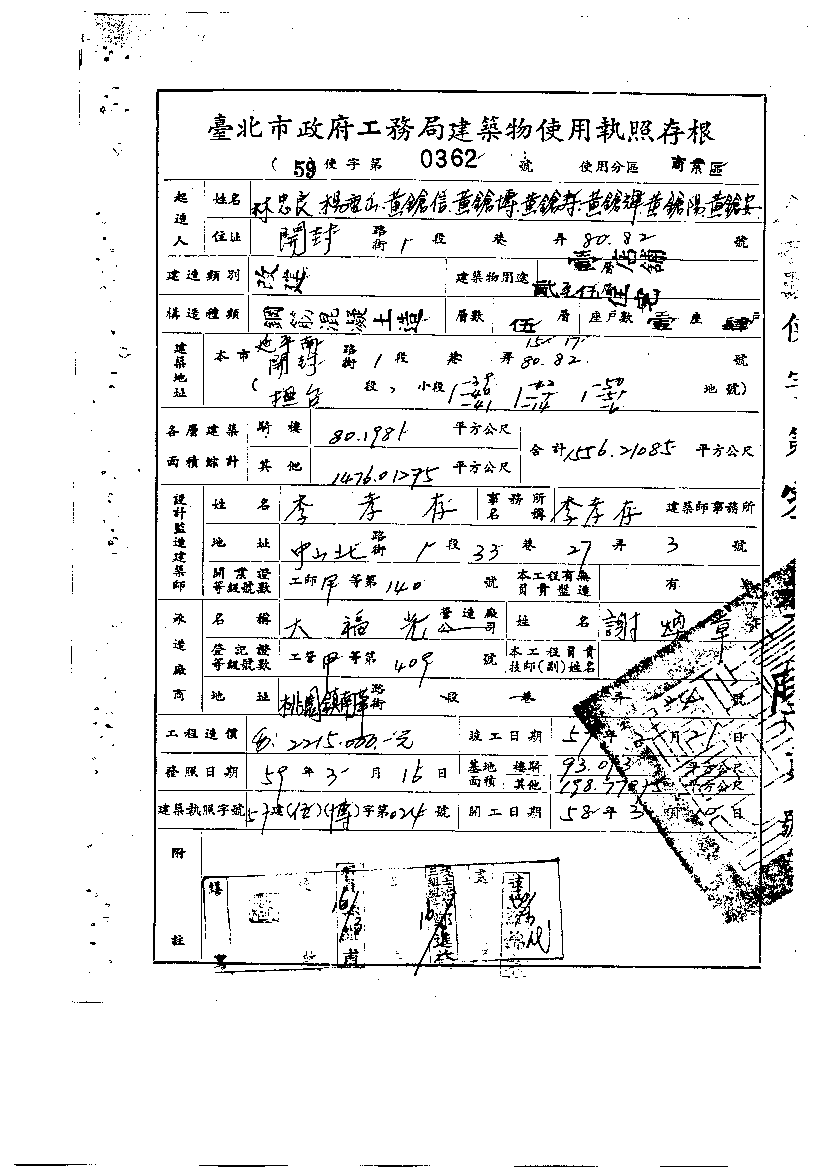 臺北市政府工務局建築物使用執照存根
(59使字第 0362 號 使用分區 商業區
起造人 姓名 林忠良 黃鎗信 黃鎗博 黃鎗輝 黃鎗陽 黃鎗安
住址 開封 路街 1 段 巷 弄 80.82 號
建造類別 改建 建築物用途 店舖 貳至伍層住宅
構造種類 鋼筋混凝土造 層數 伍 層 座戶數 壹 座 肆 戶
建築地址 本市 延平南 開封 路街 1 段 巷 弄 15 17 80.82 號
( 撫台 段 小段 1-39 -40 -41 1-42 -14 1-50 -51 -6 地號)
各層建築面積綜計 騎樓 80.1981 平方公尺 合計 1556.21085 平方公尺
其他 1476.01275 平方公尺
設計監造建築師 姓名 李孝存 事務所名稱 李孝存 建築師事務所
地址 中山北 路街 1 段 33 巷 27 弄 3 號
開業證等級號數 工師甲等第140 號 本工程有無負責監造 有
承造廠商 名稱 大福光 營造廠公司 姓名 謝 章
登記證等級號數 工營甲等第 409 號 本工程負責技師(副)姓名
地址 桃園鎮南華 路街 段 巷 號
工程造價 2215.000.-元 竣工日期 年 月 21 日
發照日期 59 年 3 月 16 日 基地面積 騎樓 93.0 平方公尺
其他 198.77 平方公尺
建築執照字號 57建(伍)(博)字第024 號 開工日期 58 年 3 月 日
附註
使字第 號